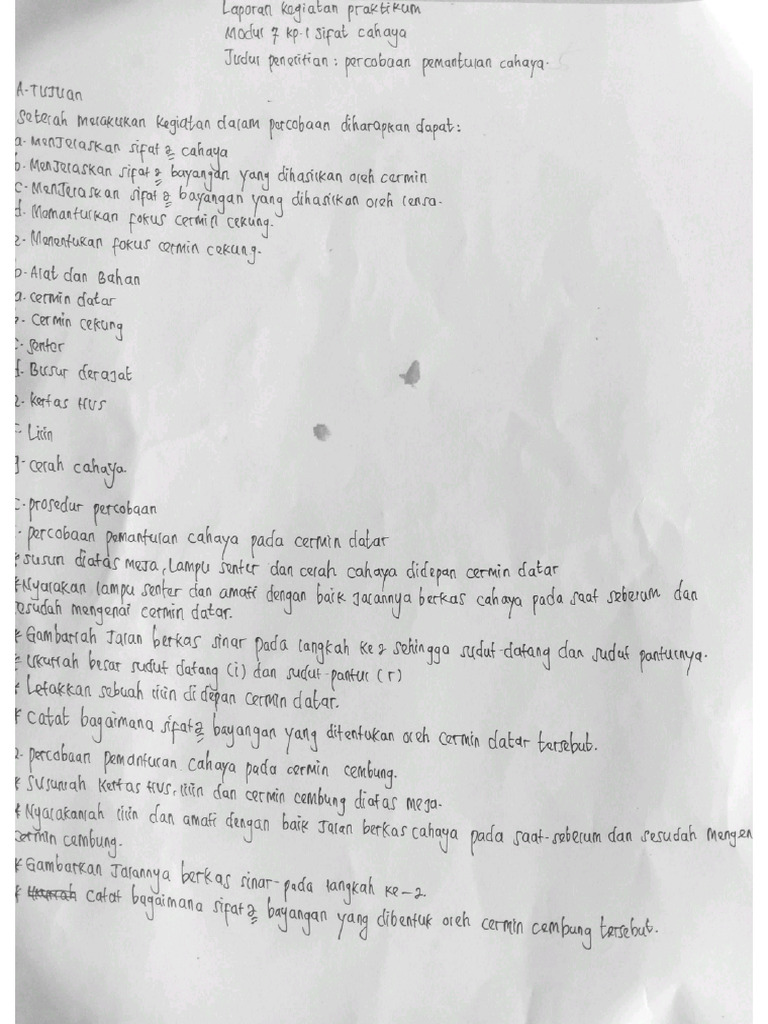 Laporan kegiatan praktikum
Modul 7 kp.1 sifat cahaya
Judul penelitian : percobaan pemantulan cahaya.
A. TUJUAN
Setelah melakukan kegiatan dalam percobaan diharapkan dapat :
a. Menjelaskan sifat2 cahaya
b. Menjelaskan sifat2 bayangan yang dihasilkan oleh cermin
c. Menjelaskan sifat2 bayangan yang dihasilkan oleh lensa.
d. Memantulkan fokus cermin cekung.
e. Menentukan fokus cermin cekung.
b. Alat dan Bahan
a. cermin datar
b. Cermin cekung
c. senter
d. Busur derajat
e. kertas HVS
f. Lilin
g. celah cahaya.
c. prosedur percobaan
1. percobaan pemantulan cahaya pada cermin datar
* susun diatas meja, lampu senter dan celah cahaya didepan cermin datar
* Nyalakan lampu senter dan amati dengan baik jalannya berkas cahaya pada saat sebelum dan
sesudah mengenai cermin datar.
* Gambarlah jalan berkas sinar pada langkah ke 2 sehingga sudut datang dan sudut pantulnya.
* Ukurlah besar sudut datang (i) dan sudut pantul (r)
* Letakkan sebuah lilin di depan cermin datar.
* catat bagaimana sifat2 bayangan yang ditentukan oleh cermin datar tersebut.
2. percobaan pemantulan cahaya pada cermin cembung.
* Susunlah kertas HVS, lilin dan cermin cembung diatas meja.
* Nyalakanlah lilin dan amati dengan baik jalan berkas cahaya pada saat sebelum dan sesudah mengen
cermin cembung.
* Gambarkan jalannya berkas sinar pada langkah ke-2.
* catat bagaimana sifat2 bayangan yang dibentuk oleh cermin cembung tersebut.